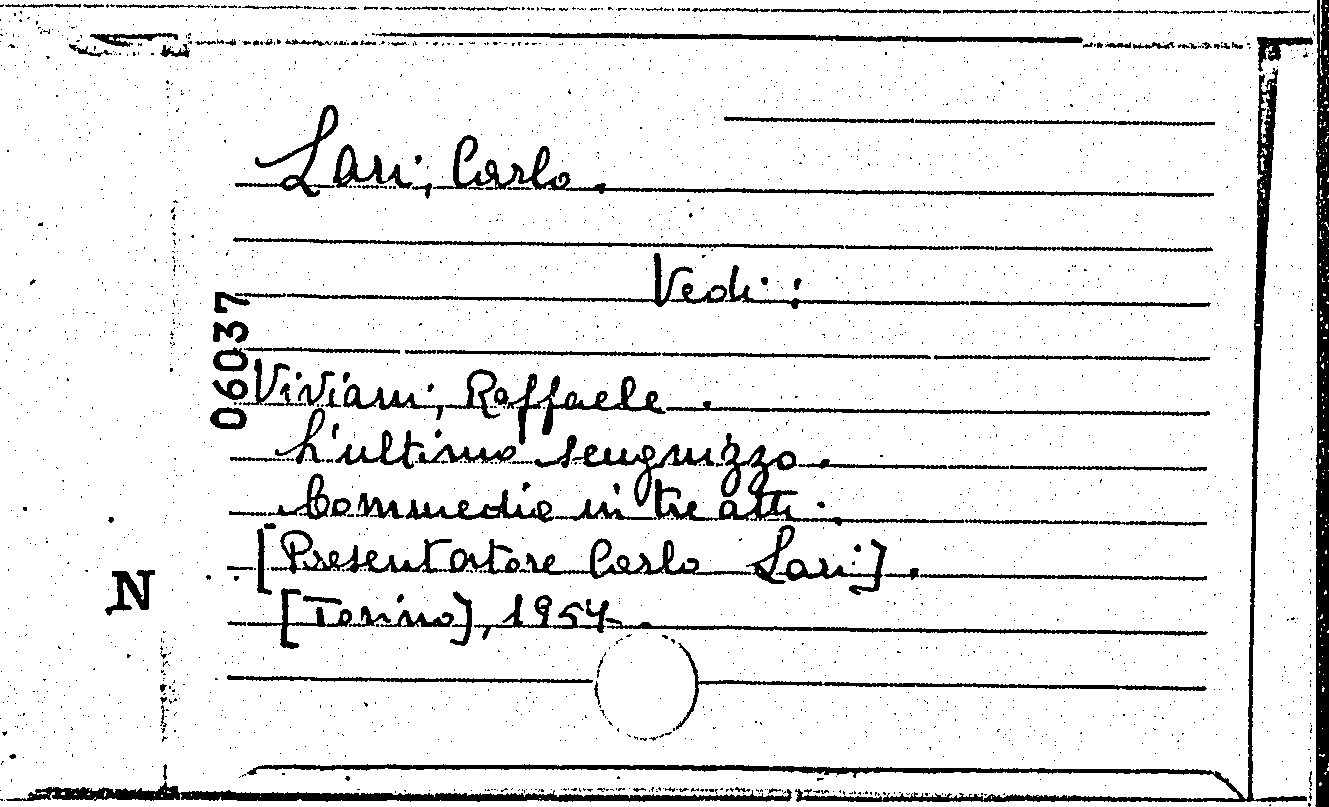 Lari, Carlo.
Vedi:
06037
Viviani, Raffaele.
L'ultimo scugnizzo.
Commedia in tre atti.
[Presentatore Carlo Lari].
N
[Torino], 1957.